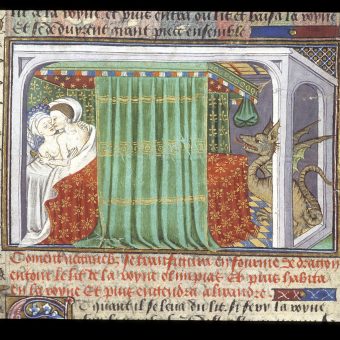 de la royne et puis entra ou lit et baisa la royne
Et se de durent grant piece ensemble
Coment nectaneb9 se transfigura en fourme de dragon
entour le lit de la royne olimpias et puis habita
en la royne et puis engendra alixandre
Quant il se leua du lit si feri la royne